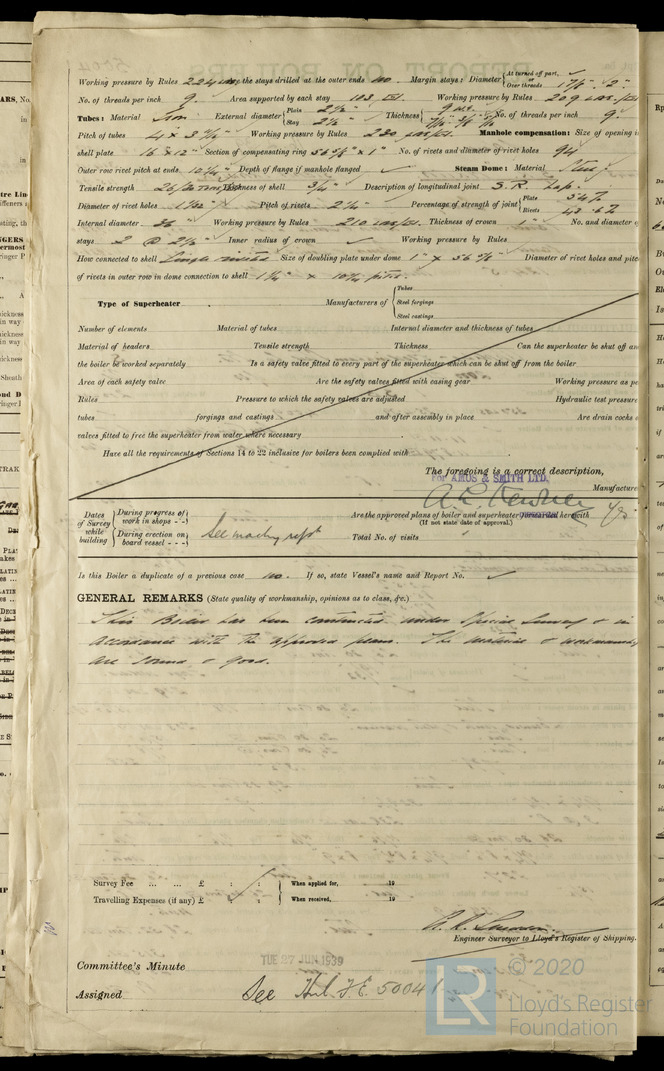 Working pressure by Rules 224 are the stays drilled at the outer ends no. Margin stays: Diameter { At turned off part, or Over threads 1 7/8" 2"
No. of threads per inch 9. Area supported by each stay 103 Working pressure by Rules 209 lbs/
Tubes: Material Iron External diameter { Plain 2 1/2" Stay 2 1/2" Thickness { No. of threads per inch 9.
Pitch of tubes 4 x 3 Working pressure by Rules 230 lbs/ Manhole compensation: Size of opening i
shell plate 16 x 12" Section of compensating ring x 1" No. of rivets and diameter of rivet holes 94
Outer row rivet pitch at ends Depth of flange if manhole flanged Steam Dome: Material Steel
Tensile strength 26/30 tons Thickness of shell 3/4" Description of longitudinal joint S.R. Lap.
Diameter of rivet holes Pitch of rivets 2 1/4" Percentage of strength of joint { Plate 54% Rivets 43.6%
Internal diameter 36" Working pressure by Rules 210 lbs/ Thickness of crown 1" No. and diameter of
stays 2 @ 2 1/2" Inner radius of crown Working pressure by Rules
How connected to shell Single riveted Size of doubling plate under dome 1" x Diameter of rivet holes and pitc
of rivets in outer row in dome connection to shell 1 1/4" x pitch.
Type of Superheater Manufacturers of { Tubes Steel forgings Steel castings
Number of elements Material of tubes Internal diameter and thickness of tubes
Material of headers Tensile strength Thickness Can the superheater be shut off an
the boiler be worked separately Is a safety valve fitted to every part of the superheater which can be shut off from the boiler
Area of each safety valve Are the safety valves fitted with easing gear Working pressure as pe
Rules Pressure to which the safety valves are adjusted Hydraulic test pressure
tubes forgings and castings and after assembly in place Are drain cocks o
valves fitted to free the superheater from water where necessary
Have all the requirements of Sections 14 to 22 inclusive for boilers been complied with
The foregoing is a correct description,
For AMOS & SMITH LTD.
Manufacture
Dates of Survey while building { During progress of work in shops - - } { During erection on board vessel - - - } See machy rept
Are the approved plans of boiler and superheater forwarded herewith Yes
(If not state date of approval.)
Total No. of visits
Is this Boiler a duplicate of a previous case no. If so, state Vessel's name and Report No.
GENERAL REMARKS (State quality of workmanship, opinions as to class, &c.)
This Boiler has been constructed under Special Survey & in
accordance with the approved plans. The material & workmanship
are sound & good.
Survey Fee ... ... £ : : When applied for, 19
Travelling Expenses (if any) £ : : When received, 19
Engineer Surveyor to Lloyd's Register of Shipping.
TUE 27 JUN 1939
Committee's Minute
Assigned See Hul. F.E. 50041
LR © 2020
Lloyd's Register
Foundation